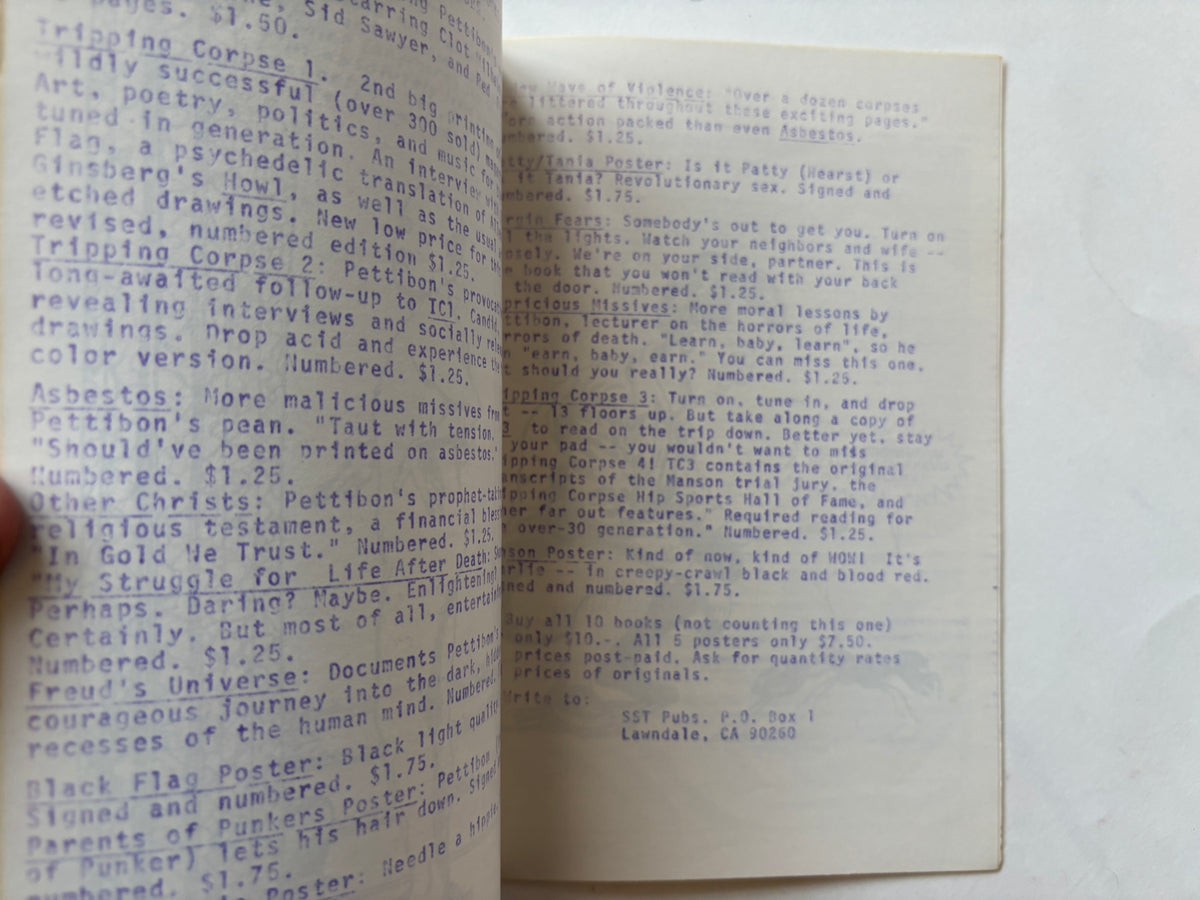 pages. $1.50.
Sid Sawyer, and Red
Tripping Corpse 1. 2nd big printing
wildly successful (over 300 sold)
Art, poetry, politics, and music for
tuned in generation. An interview with
Flag, a psychedelic translation of
Ginsberg's Howl, as well as the usual
etched drawings. New low price for this
revised, numbered edition $1.25.
Tripping Corpse 2: Pettibon's
long-awaited follow-up to TC1. Candid,
revealing interviews and socially
drawings. Drop acid and experience the
color version. Numbered. $1.25.
Asbestos: More malicious missives from
Pettibon's pean. "Taut with tension.
"Should've been printed on asbestos."
Numbered. $1.25.
Other Christs: Pettibon's
religious testament, a financial
"In Gold We Trust." Numbered. $1.25.
"My Struggle for Life After Death:
Perhaps. Daring? Maybe. Enlightening?
Certainly. But most of all,
Numbered. $1.25.
Freud's Universe: Documents Pettibon's
courageous journey into the dark,
recesses of the human mind. Numbered.
Black Flag Poster: Black light quality
Signed and numbered. $1.75.
Parents of Punkers Poster: Pettibon
of Punker) lets his hair down. Signed
numbered. $1.75.
Poster: Needle a hippie.
Wave of Violence: "Over a dozen corpses
littered throughout these exciting pages."
action packed than even Asbestos.
$1.25.
/Tania Poster: Is it Patty (Hearst) or
it Tania? Revolutionary sex. Signed and
$1.75.
Fears: Somebody's out to get you. Turn on
the lights. Watch your neighbors and wife --
We're on your side, partner. This is
book that you won't read with your back
the door. Numbered. $1.25.
Missives: More moral lessons by
lecturer on the horrors of life,
of death. "Learn, baby, learn", so he
"earn, baby, earn." You can miss this one,
should you really? Numbered. $1.25.
Corpse 3: Turn on, tune in, and drop
-- 13 floors up. But take along a copy of
to read on the trip down. Better yet, stay
your pad -- you wouldn't want to miss
Corpse 4! TC3 contains the original
of the Manson trial jury, the
Corpse Hip Sports Hall of Fame, and
far out features." Required reading for
over-30 generation." Numbered. $1.25.
Poster: Kind of now, kind of WOW! It's
-- in creepy-crawl black and blood red.
and numbered. $1.75.
Buy all 10 books (not counting this one)
only $10.-. All 5 posters only $7.50.
prices post-paid. Ask for quantity rates
prices of originals.
Write to:
SST Pubs. P.O. Box 1
Lawndale, CA 90260